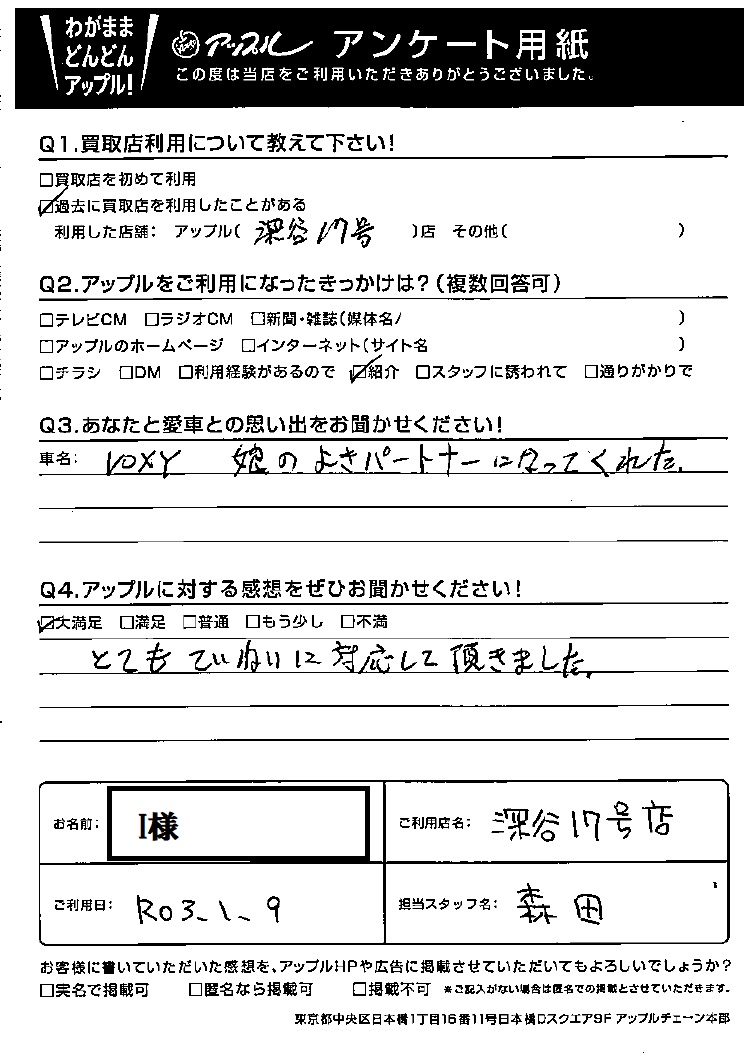 わがまま
どんどん
アップル!
アップル アンケート用紙
この度は当店をご利用いただきありがとうございました。
Q1.買取店利用について教えて下さい!
□買取店を初めて利用
☑過去に買取店を利用したことがある
利用した店舗: アップル( 深谷17号 )店 その他( )
Q2.アップルをご利用になったきっかけは?(複数回答可)
□テレビCM □ラジオCM □新聞・雑誌(媒体名/ )
□アップルのホームページ □インターネット(サイト名 )
□チラシ □DM □利用経験があるので ☑紹介 □スタッフに誘われて □通りがかりで
Q3.あなたと愛車との思い出をお聞かせください!
車名: VOXY 娘のよきパートナーになってくれた。
Q4.アップルに対する感想をぜひお聞かせください!
☑大満足 □満足 □普通 □もう少し □不満
とてもていねいに対応して頂きました。
お名前: I様
ご利用店名: 深谷17号店
ご利用日: R03.1.9
担当スタッフ名: 森田
お客様に書いていただいた感想を、アップルHPや広告に掲載させていただいてもよろしいでしょうか?
□実名で掲載可 □匿名なら掲載可 □掲載不可 *ご記入がない場合は匿名での掲載とさせていただきます。
東京都中央区日本橋1丁目16番11号日本橋Dスクエア9F アップルチェーン本部